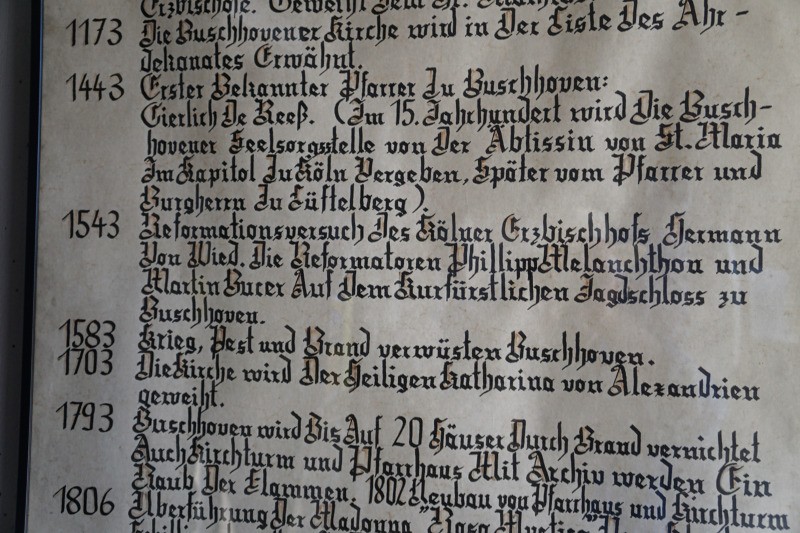 Erzbischofs. Geweiht Dem St.
1173 Die Buschhovener Kirche wird in Der Liste Des Ahr-
dekanates Erwähnt.
1443 Erster Bekannter Pfarrer Zu Buschhoven:
Gierlich De Reeß. (Im 15. Jahrhundert wird Die Busch-
hovener Seelsorgsstelle von Der Äbtissin von St. Maria
Im Kapitol Zu Köln Vergeben, Später vom Pfarrer und
Burgherrn Zu Lüftelberg).
1543 Reformationsversuch Des Kölner Erzbischhofs Hermann
Von Wied. Die Reformatoren Phillipp Melanchthon und
Martin Bucer Auf Dem Kurfürstlichen Jagdschloss zu
Buschhoven.
1583 Krieg, Pest und Brand verwüsten Buschhoven.
1703 Die Kirche wird Der Heiligen Katharina von Alexandrien
geweiht.
1793 Buschhoven wird Bis Auf 20 Häuser Durch Brand vernichtet
Auch Kirchturm und Pfarrhaus Mit Archiv werden Ein
Raub Der Flammen. 1802 Neubau von Pfarrhaus und Kirchturm
1806 Überführung Der Madonna "Rosa Mystica"